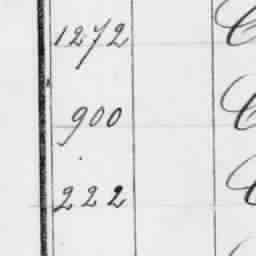 1272
900
222